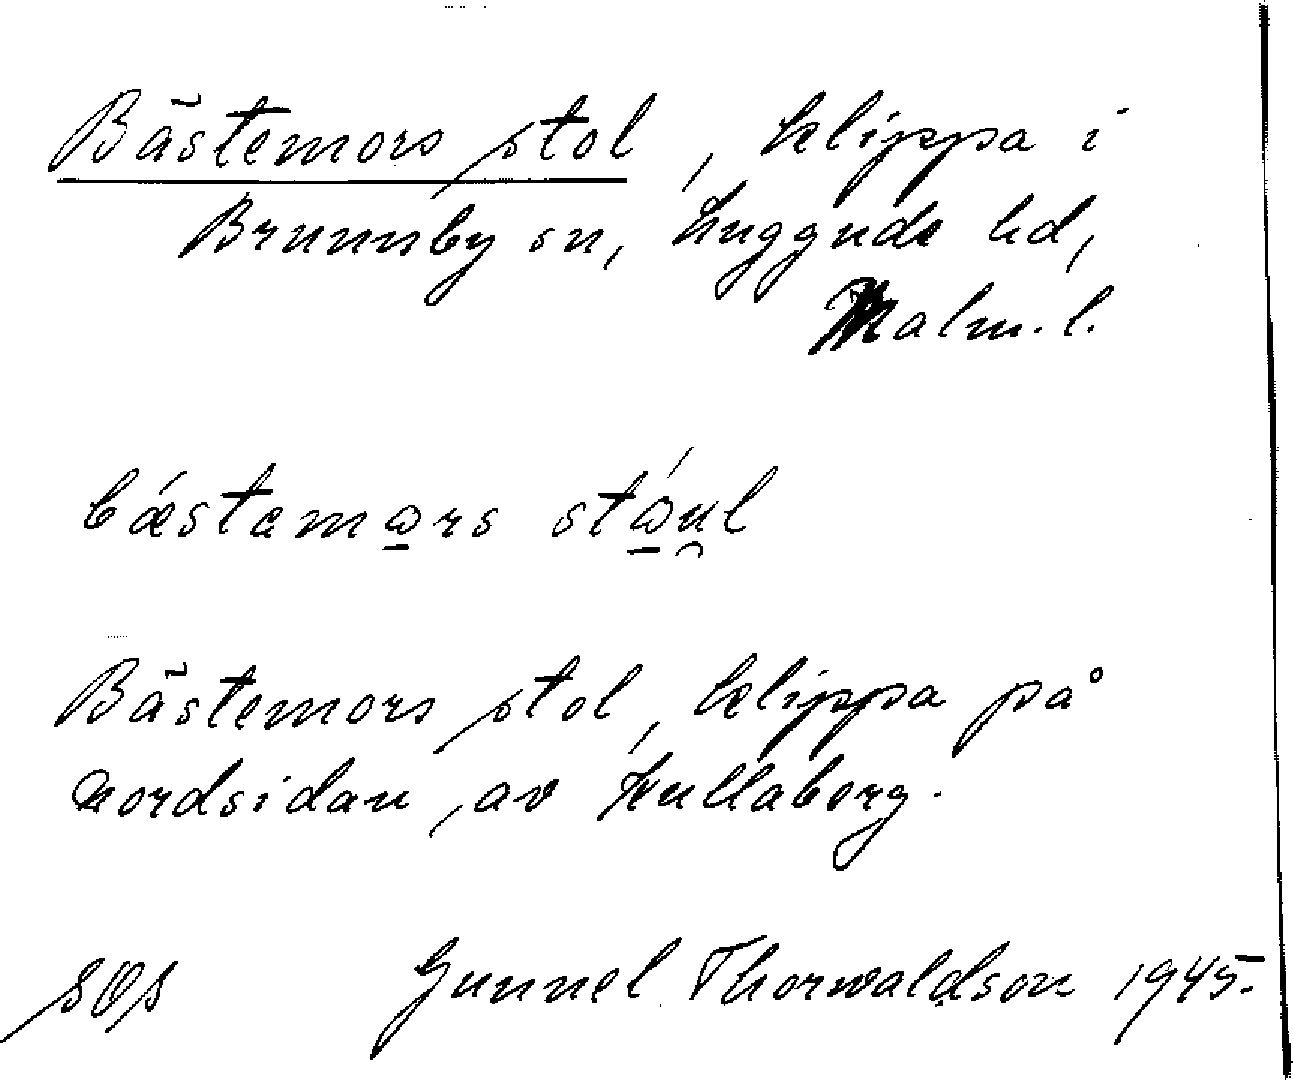 Bästemors stol, klippa i
Brunnby sn, Luggude hd,
Malm. l.
bǽstemω̱rs stώ̱u̯l
Bästemors stol, klippa på
nordsidan av Kullaberg.
SOS Gunnel Thorwaldson 1945.